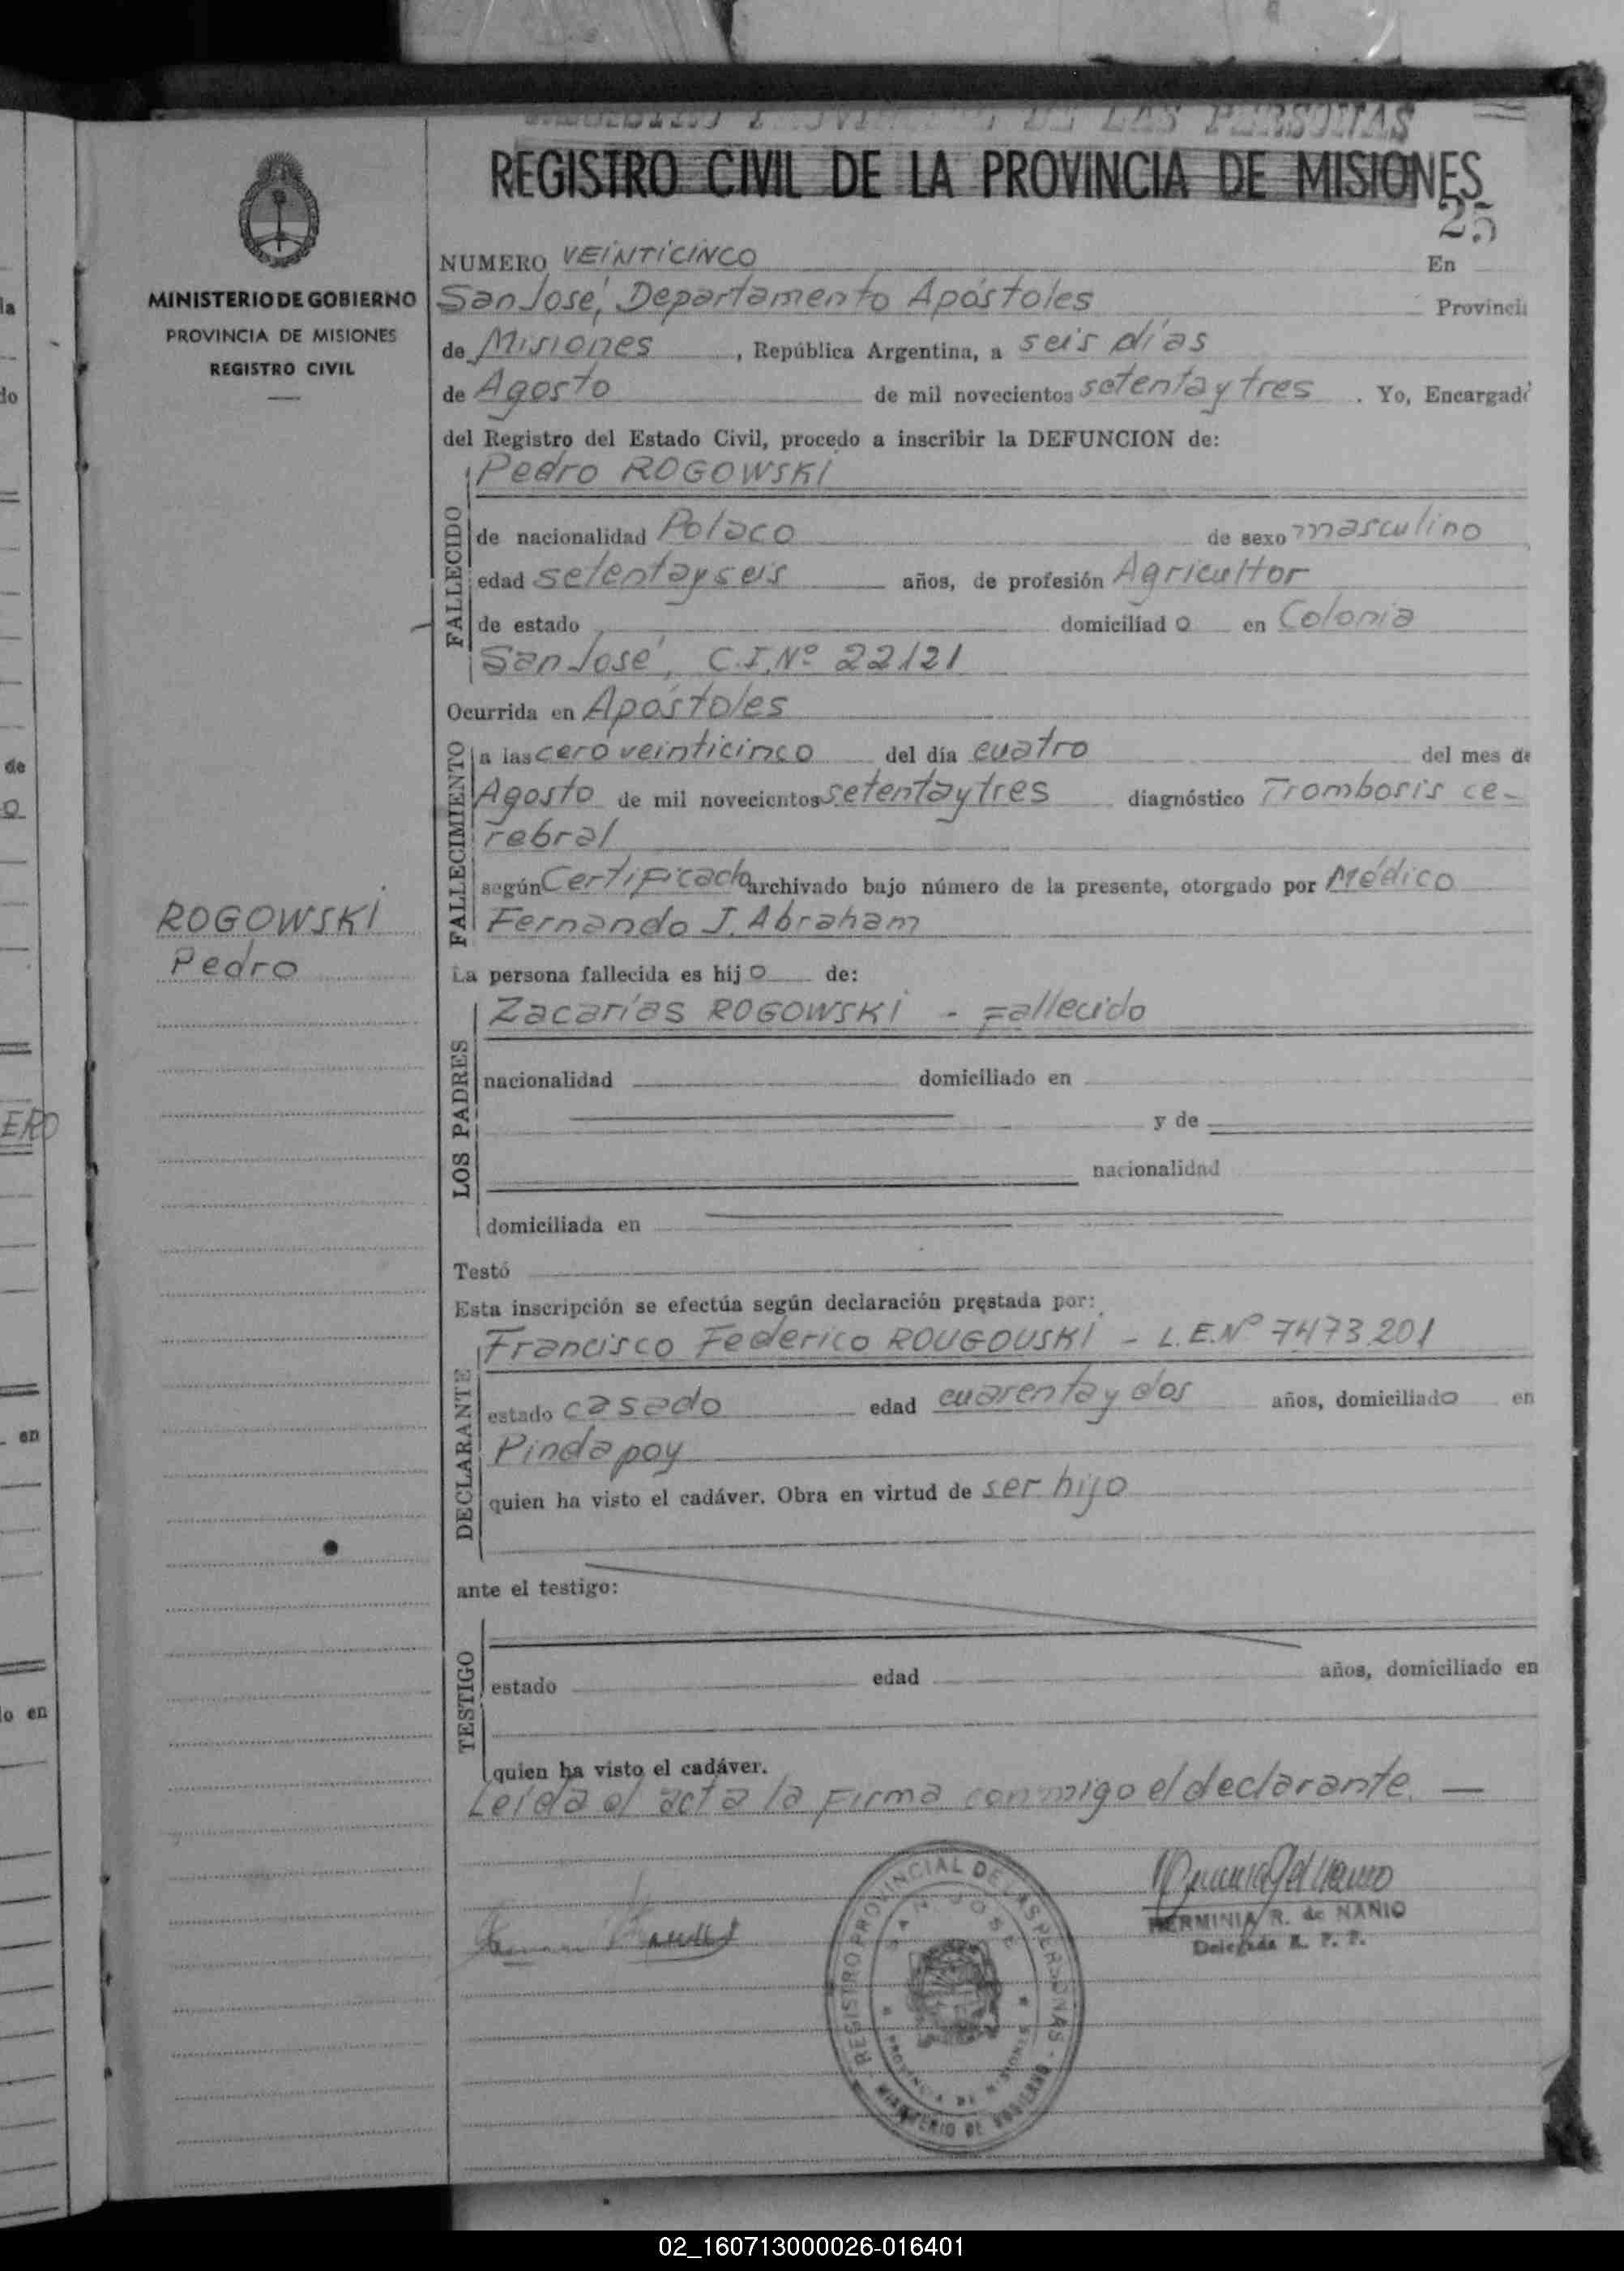 REGISTRO CIVIL DE LA PROVINCIA DE MISIONES
25
MINISTERIO DE GOBIERNO
PROVINCIA DE MISIONES
REGISTRO CIVIL
NUMERO VEINTICINCO En
San José, Departamento Apóstoles Provinci
de Misiones, República Argentina, a seis días
de Agosto de mil novecientos setenta y tres. Yo, Encargado
del Registro del Estado Civil, procedo a inscribir la DEFUNCION de:
FALLECIDO
Pedro ROGOWSKI
de nacionalidad Polaco de sexo masculino
edad setenta y seis años, de profesión Agricultor
de estado domiciliad o en Colonia
San José, C.I. Nº 22121
Ocurrida en Apóstoles
FALLECIMIENTO
a las cero veinticinco del día cuatro del mes de
Agosto de mil novecientos setenta y tres diagnóstico Trombosis ce-
rebral
según Certificado archivado bajo número de la presente, otorgado por Médico
Fernando J. Abraham
ROGOWSKI
Pedro
La persona fallecida es hij o de:
LOS PADRES
Zacarías ROGOWSKI - Fallecido
nacionalidad domiciliado en
y de
nacionalidad
domiciliada en
Testó
Esta inscripción se efectúa según declaración prestada por:
DECLARANTE
Francisco Federico ROUGOUSKI - L.E. Nº 7473201
estado casado edad cuarenta y dos años, domiciliado en
Pindapoy
quien ha visto el cadáver. Obra en virtud de ser hijo
ante el testigo:
TESTIGO
estado edad años, domiciliado en
quien ha visto el cadáver.
Leída el acta la firma conmigo el declarante. —
REGISTRO PROVINCIAL DE LAS PERSONAS - MINISTERIO DE GOBIERNO
SAN JOSE
PROVINCIA DE MISIONES
HERMINIA R. de NANIO
Delegada R. P. P.
la
do
de
o
ERO
en
lo en
02_160713000026-016401